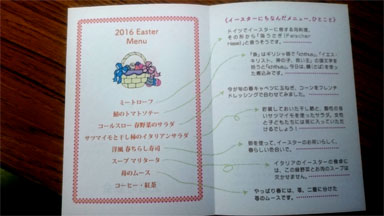 2016 Easter
Menu
ミートローフ
鯛のトマトソテー
コールスロー 春野菜のサラダ
サツマイモと干し柿のイタリアンサラダ
洋風 春ちらし寿司
スープ マリタータ
苺のムース
コーヒー・紅茶
《イースターにちなんだメニュー、ひとこと》
ドイツでイースターに食べる肉料理、
その形から「偽うさぎ(Falscher
Hase)」と言うそうです。
「魚」はギリシャ語で「ichthus」、「イエス・
キリスト、神の子、救い主」の頭文字を
今が旬の春キャベツに玉ねぎ、コーンをフレンチ
ドレッシングで合わせてみました。
サツマイモを使ったサラダ、
だけるでしょう!
卵を使って、イースターのお祝いらしく、
イタリアのイースターの食卓に
は、この緑野菜とお肉のスープは
欠かせません。
やっぱり春には、苺、二層に分けた
苺のムースです。